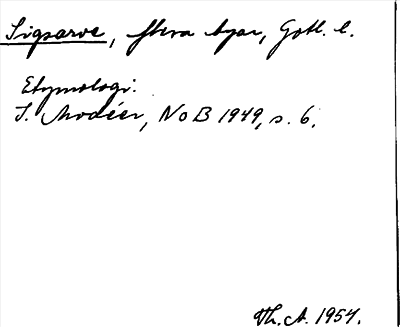 Sigsarve, flera byar, Gotl. l.
Etymologi.
I. Modéer, NoB 1949, s. 6.
Th. A. 1954.